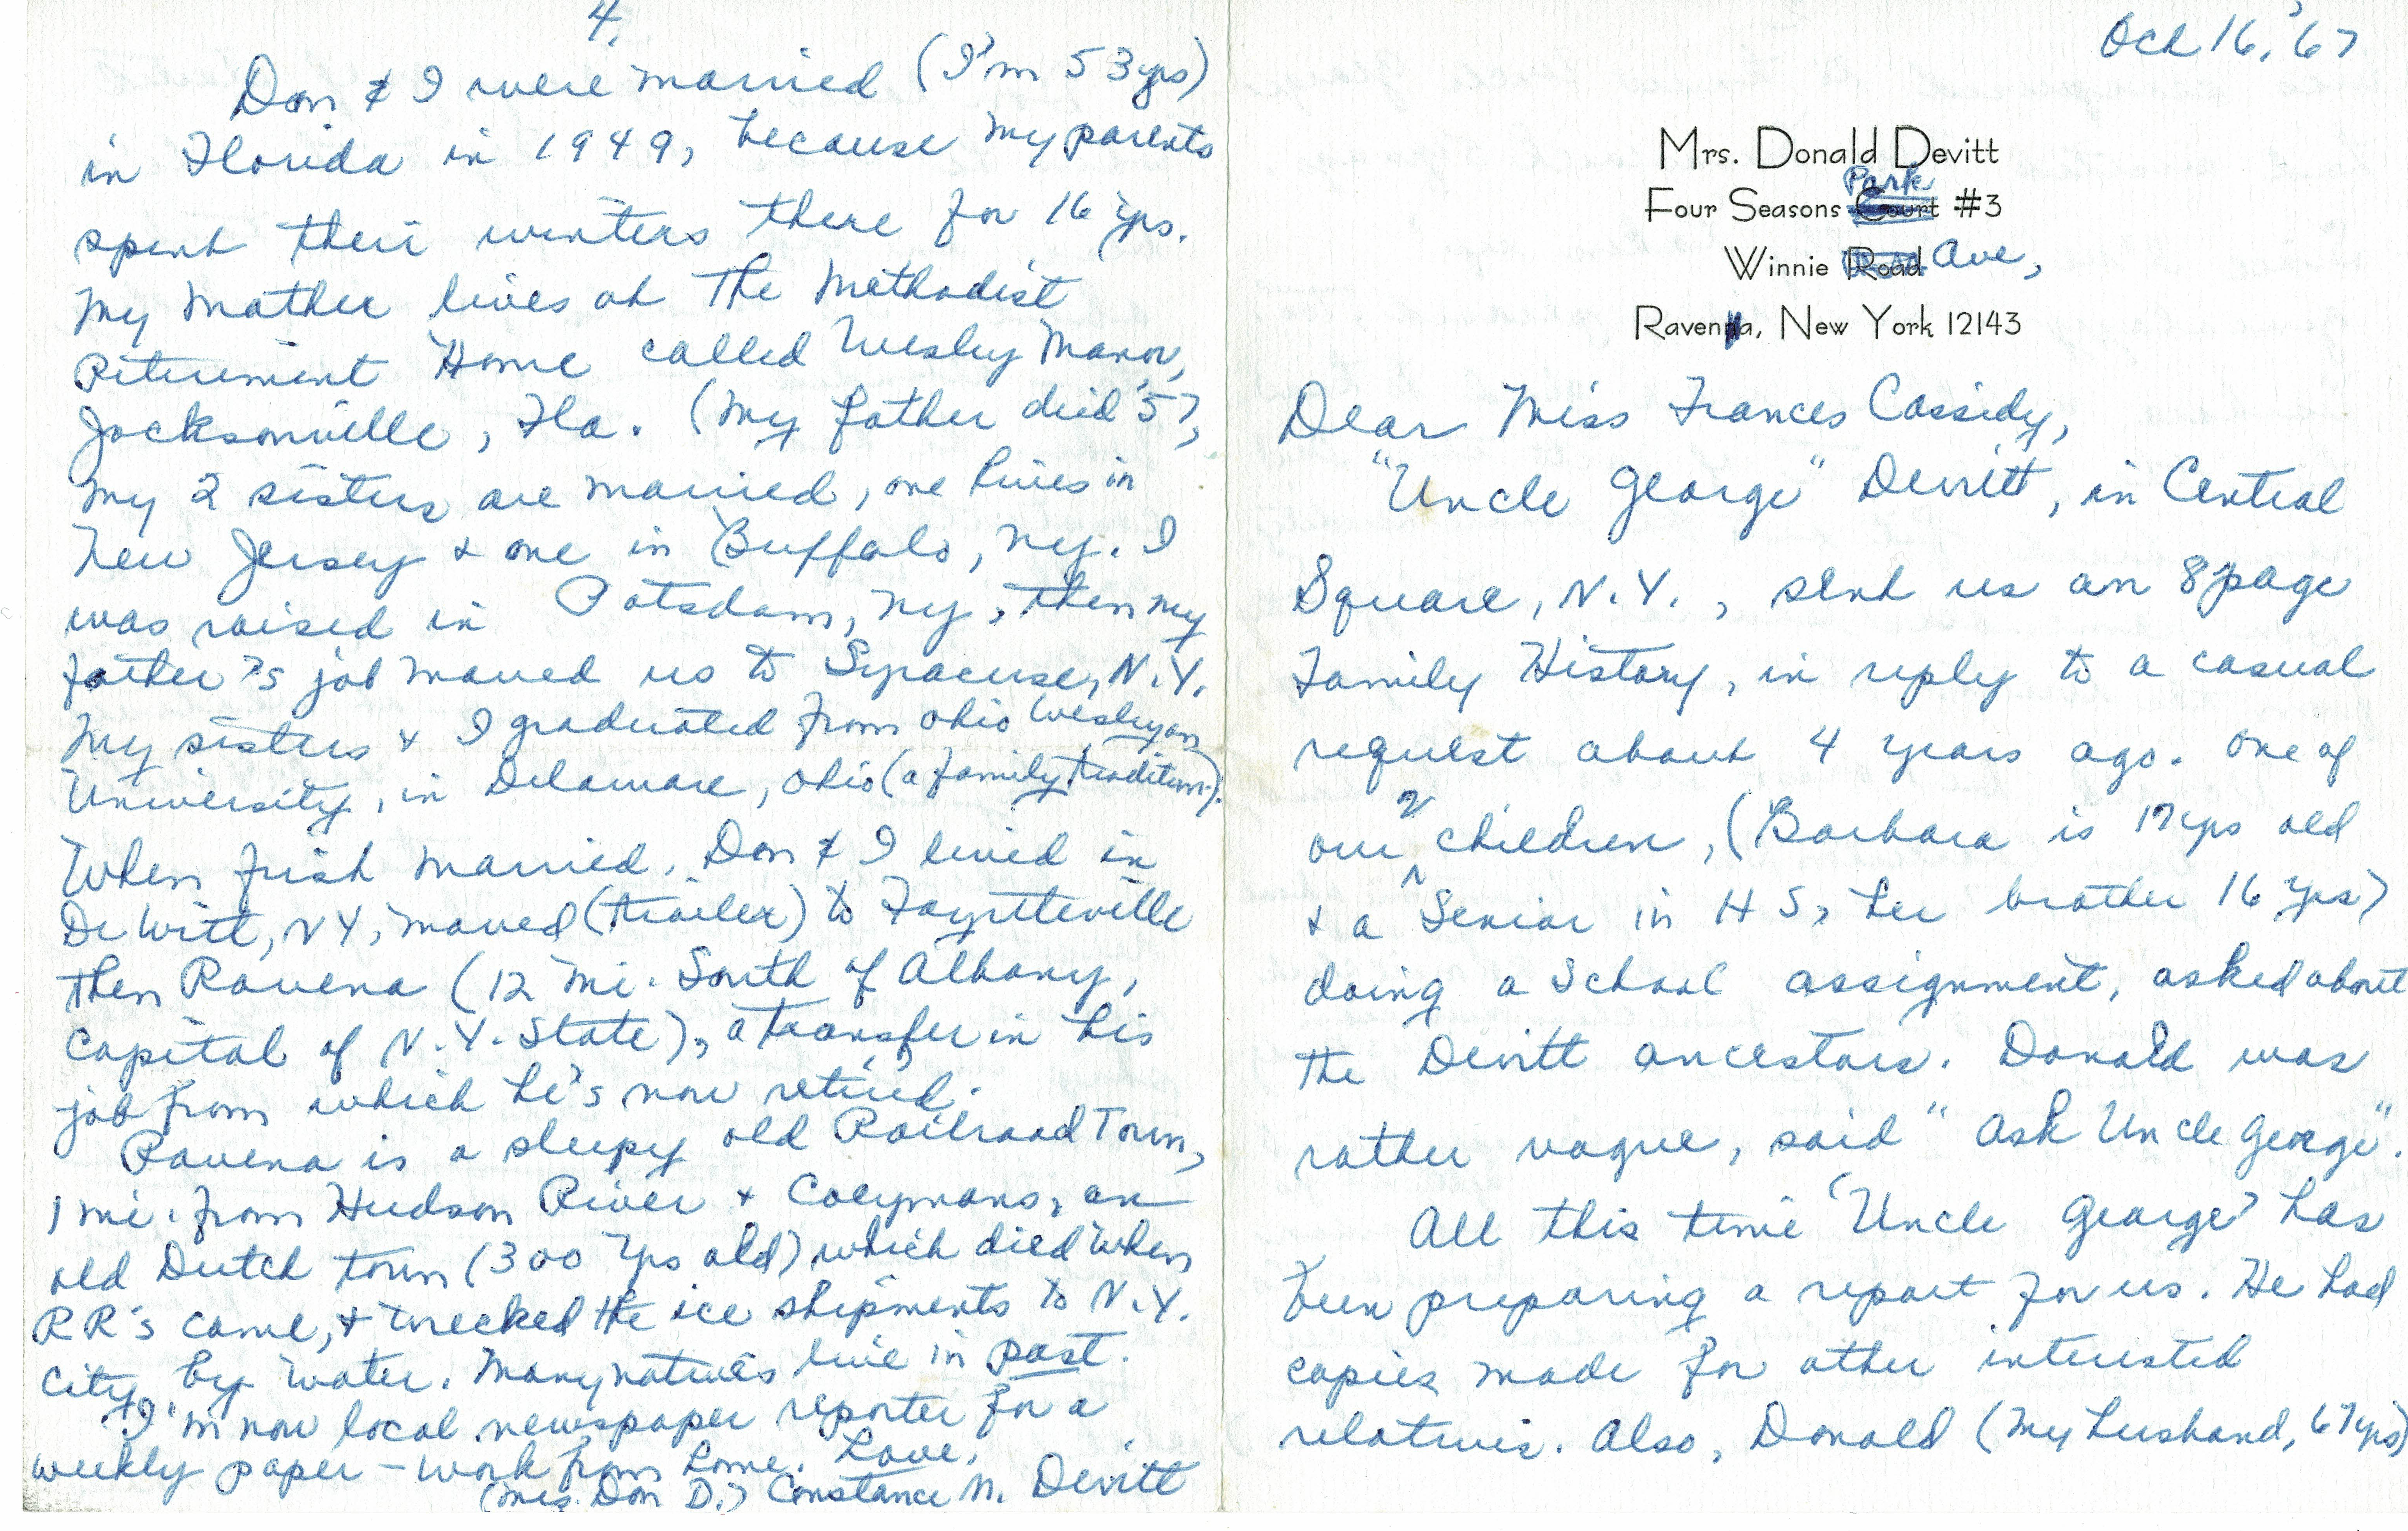 Oct 16, '67
Mrs. Donald Devitt
Park
Four Seasons Court #3
Winnie Road Ave,
Ravenna, New York 12143
Dear Miss Frances Cassidy,
"Uncle George" Devitt, in Central
Square, N.Y., sent us an 8 page
Family History, in reply to a casual
request about 4 years ago. One of
our 2 children, (Barbara is 17 yrs old
& a Senior in H S, her brother 16 yrs)
doing a School assignment, asked about
the Devitt ancestors. Donald was
rather vague, said "Ask Uncle George".
All this time 'Uncle George' has
been preparing a report for us. He had
copies made for other interested
relatives. Also, Donald (my husband, 67 yrs)
4.
Don & I were married (I'm 53 yrs)
in Florida in 1949, because my parents
spent their winters there for 16 yrs.
My Mother lives at The Methodist
Retirement Home called Wesley Manor,
Jacksonville, Fla. (My father died '57,
My 2 sisters are married, one lives in
New Jersey & one in Buffalo, N.Y. I
was raised in Potsdam, N.Y., then my
father's job moved us to Syracuse, N.Y.
My sisters & I graduated from Ohio Wesleyan
University, in Delaware, Ohio (a family tradition).
When first married, Don & I lived in
DeWitt, N Y, moved (trailer) to Fayetteville
then Ravena (12 mi. South of Albany,
Capital of N.Y. State), a transfer in his
job from which he's now retired.
Ravena is a sleepy old Railroad Town,
1 mi. from Hudson River & Coeymans, an
old Dutch town (300 yrs old) which died when
RR's came, & wrecked the ice shipments to N.Y.
City, by water. Many natives live in past.
I'm now local newspaper reporter for a
weekly paper - work from home. Love,
(Mrs. Don D.) Constance N. Devitt